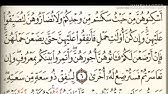 أَسْكِنُوهُنَّ مِنْ حَيْثُ سَكَنتُم مِّن وُجْدِكُمْ وَلَا تُضَآرُّوهُنَّ لِتُضَيِّقُوا۟
عَلَيْهِنَّ ۚ وَإِن كُنَّ أُو۟لَـٰتِ حَمْلٍ فَأَنفِقُوا۟ عَلَيْهِنَّ حَتَّىٰ يَضَعْنَ حَمْلَهُنَّ ۚ
فَإِنْ أَرْضَعْنَ لَكُمْ فَـَٔاتُوهُنَّ أُجُورَهُنَّ ۖ وَأْتَمِرُوا۟ بَيْنَكُم بِمَعْرُوفٍ ۖ وَإِن
تَعَاسَرْتُمْ فَسَتُرْضِعُ لَهُۥٓ أُخْرَىٰ ۝٦ لِيُنفِقْ ذُو سَعَةٍ مِّن سَعَتِهِۦ